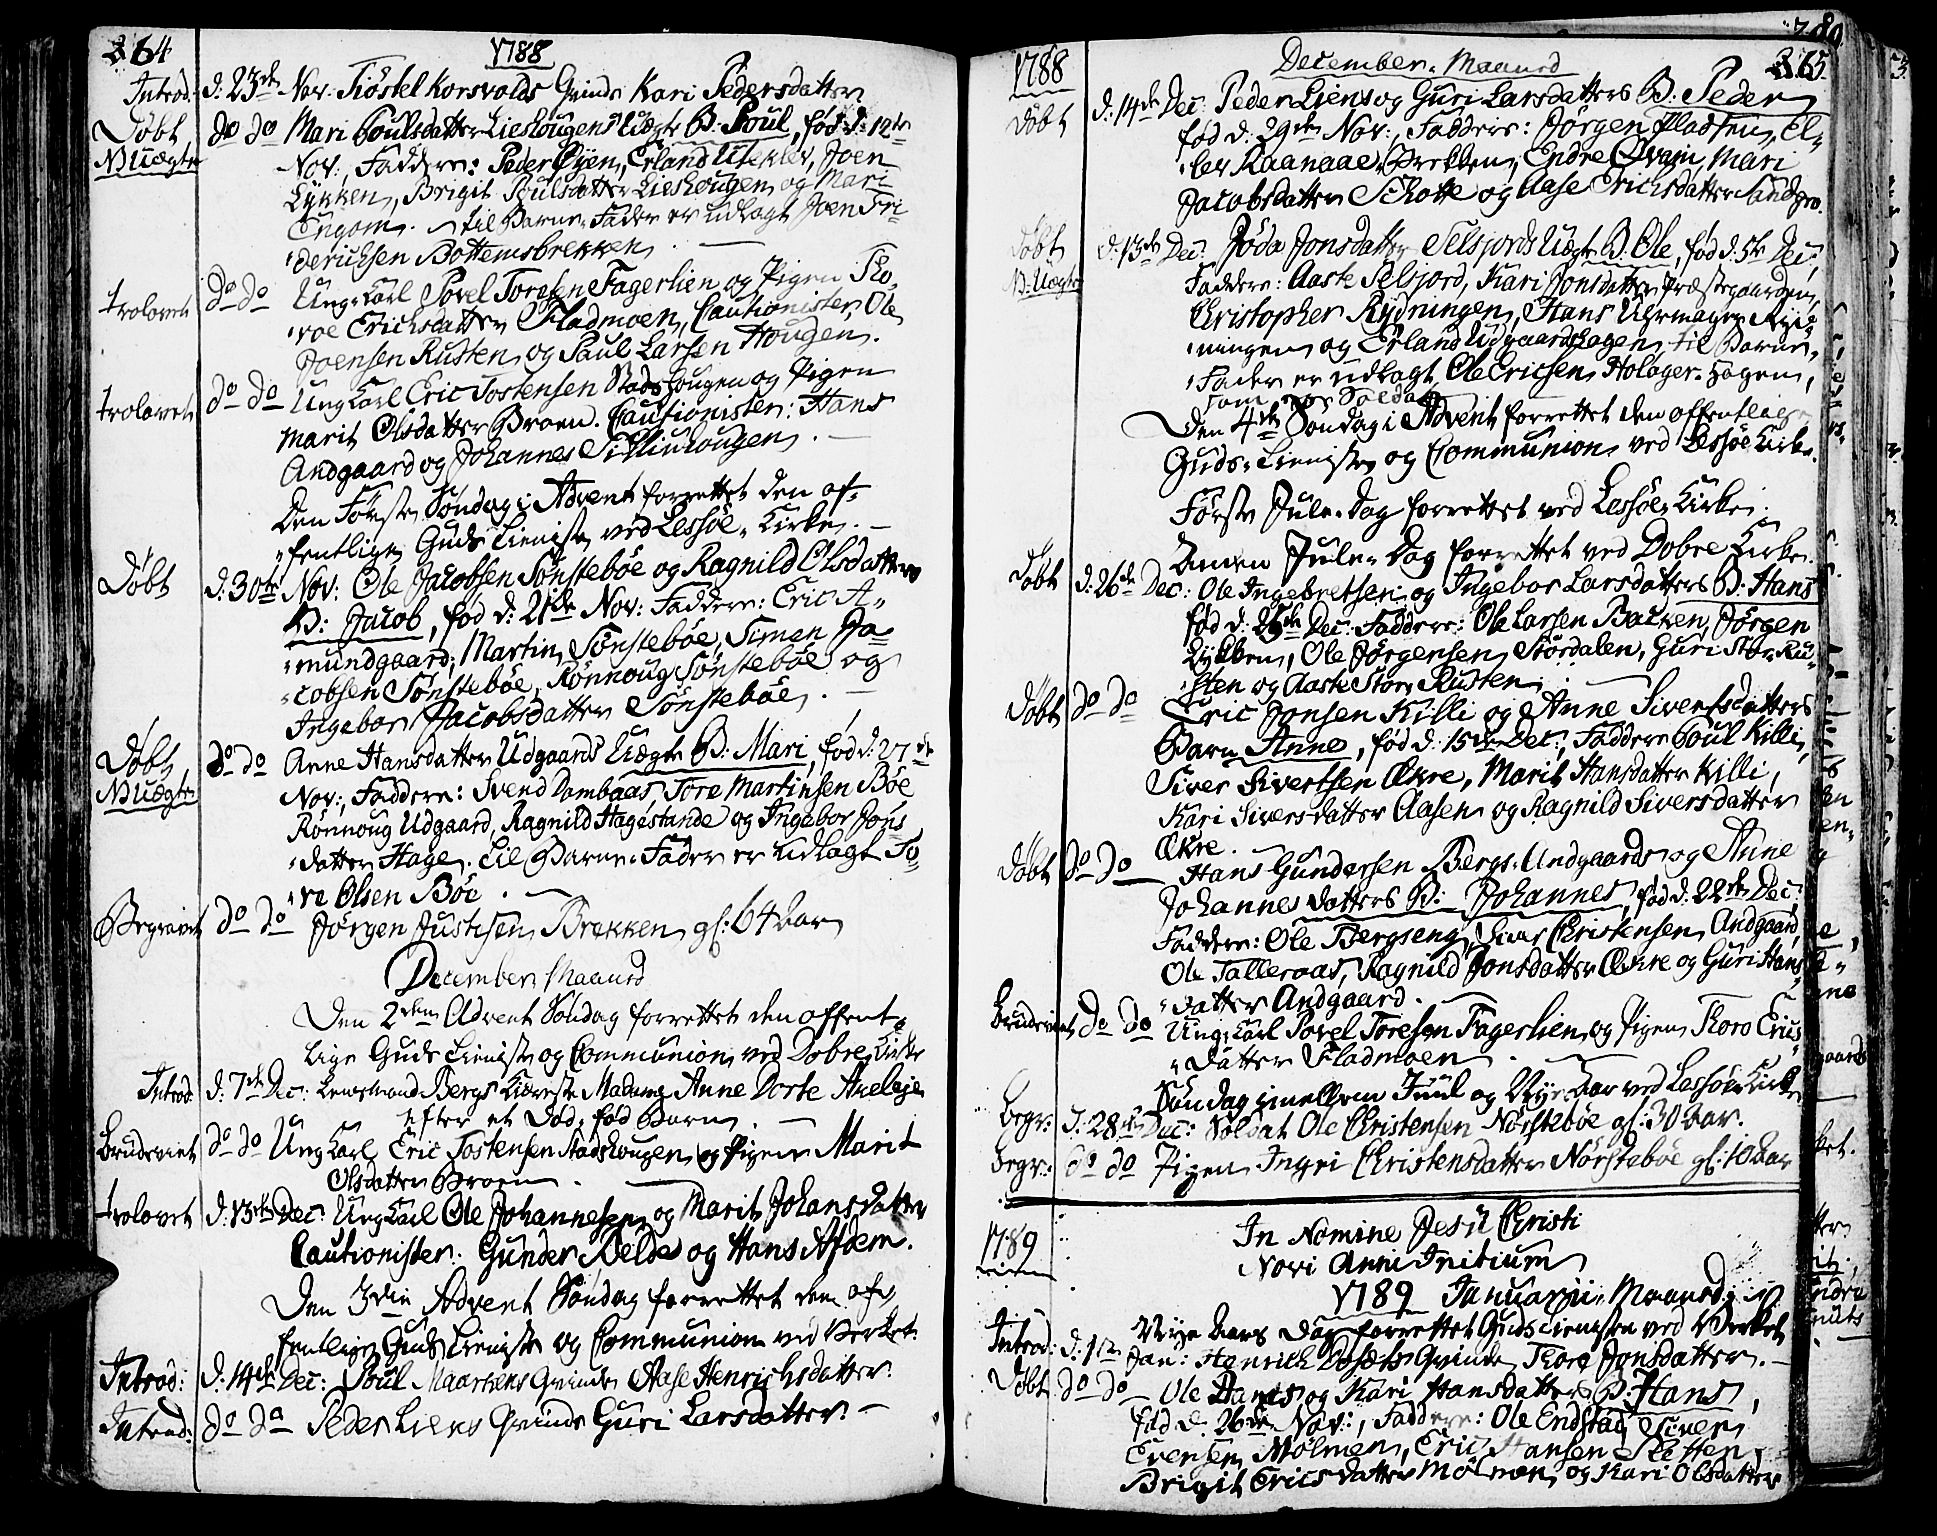 264
1788
Introd: d: 23de Nov: Tiöstel Korsvolds Qvinde Kari Pedersdatter
Döbt do do Mari Poulsdatter Lieshougens Uægte B: Poul, fød d: 12te
B: Uægte Nov:, Faddere: Peder Öyen, Erland Uleklev, Joen
Lykken, Brigit Poulsdatter Lieshougen og Mari
Engom. til Barne-Fader er udlagt Joen Fri-
derichsen Bottemsbrekken.
trolovet do do Ung-Karl Povel Toresen Fagerlien og Pigen Tho-
roe Erichsdatter Fladmoen, Cautionister, Ole
Joensen Rusten og Paul Larsen Hougen.
trolovet do do Ung Karl Eric Tostensen Stadshougen og Pigen
Marit Olsdatter Broen. Cautionister: Hans
Andgaard og Johannes Sillihougen.
Den Förste Söndag i Advent forrettet den of-
fentlige Guds Tieniste ved Lessöe-Kirke.
Döbt d: 30te Nov: Ole Jacobsen Sönsteböe og Ragnild Olsdatters
B: Jacob, fød d: 21de Nov: Faddere: Eric A-
mundgaard, Martin Sönsteböe, Simen Ja-
cobsen Sönsteböe, Rönnoug Sönsteböe og
Ingebor Jacobsdatter Sönsteböe.
Döbt do do Anne Hansdatter Udgaards Uægte B: Mari, fød d: 27de
B: Uægte Nov:, Faddere: Svend Dombaas, Tore Martinsen Böe
Rönnoug Udgaard, Ragnild Hagestande og Ingebor Jons
datter Hage. Til Barne-Fader er udlagt To-
re Olsen Böe.
Begravet do do Jörgen Justisen Brekken gl: 64 Aar
December Maaned
Den 2den Advent Söndag forrettet den offent-
lige Guds Tieniste og Communion ved Dobre Kirke
Introd: d: 7de Dec: Lensmand Bergs Kiæreste Madame Anne Dorte Axelsje
efter et Död-fød Barn.
Brudeviet do do Ung Karl Eric Tostensen Stadshougen og Pigen Marit
Olsdatter Broen.
trolovet d: 13de Dec: Ung Karl Ole Johannesen og Marit Johansdatter
Cautionister: Gunder Kelde og Hans Afdem.
Den 3die Advent Söndag forrettet den of-
fentlige Guds Tieniste og Communion ved Verket.
Introd: d: 14de Dec: Poul Maartens Qvinde Aase Henrichsdatter.
Introd: do do Peder Liens Qvinde Guri Larsdatter.
1788
December-Maaned
265
Döbt d: 14de Dec: Peder Liens og Guri Larsdatters B: Peder
fød d: 29de Nov:, Faddere: Jörgen Pladsen, El-
lev Raanaae, Brekken, Endre Qvam, Mari
Jacobsdatter Schotte og Aase Erichsdatter Sandgro.
Döbt d: 13de Dec: Jöda Jonsdatter Selsjords Uægte B: Ole, fød d: 5te Dec:,
B: Uægte Faddere: Aaste Selsjord, Kari Jonsdatter Præstegaarden,
Christopher Rydningen, Hans Uhrmager Ryd-
ningen og Erland Udgaardshagen, til Barne-
Fader er udlagt Ole Ericsen Holager-Hagen,
som er Soldat
Den 4de Söndag i Advent forrettet den offentlige
Guds-Tieniste og Communion ved Lessöe Kirke.
Förste Jule-Dag forrettet ved Lessöe Kirke.
Anden Jule-Dag forrettet ved Dobre Kirke.
Döbt d: 26de Dec: Ole Ingebretsen og Ingebor Larsdatters B: Hans
fød d: 25de Dec: Faddere: Ole Larsen Backen, Jörgen
Lykken, Ole Jörgensen Stordalen, Guri Stor-Ru-
sten og Aaste Stor-Rusten.
Döbt do do Eric Jonsen Killi og Anne Sivertsdatters
Barn Anne, fød d: 15de Dec:, Faddere Poul Killi,
Siver Sivertsen Ökre, Marit Hansdatter Killi,
Kari Siversdatter Aasen og Ragnild Siversdatter
Ökre.
Döbt do do Hans Gundersen Bergs-Undgaards og Anne
Johannesdatters B: Johannes, fød d: 22de Dec:
Faddere: Ole Bergseng, Christensen Andgaard,
Ole Talleraas, Ragnild Jonsdatter Ökre og Guri Hans
datter Andgaard.
Brudeviet do do Ung-Karl Povel Toresen Fagerlien og Pigen Thoro Erics
datter Fladmoen.
Söndag imellem Juul og Nye-Aar ved Lessöe Kirke
Begr: d: 28de Dec: Soldat Ole Christensen Norsteböe gl: 30 Aar.
begr: do do Pigen Ingri Christensdatter Nörsteböe gl: 10 Aar
1789
In Nomine Jesu Christi
Novi Anni Initium
1789 Januarii-Maaned
Nye Aars Dag forrettet Guds tieniste ved Verket
Introd: d: 1te Jan: Henrich Qvinde Thore Jonsdatter.
Döbt do do Ole og Kari Hansdatters B: Hans,
fød d. 26de Nov:, Faddere: Ole Endstad, Siver
Evensen Mölmen, Eric Hansen Sletten,
Brigit Ericsdatter Mölmen og Kari Olsdatter